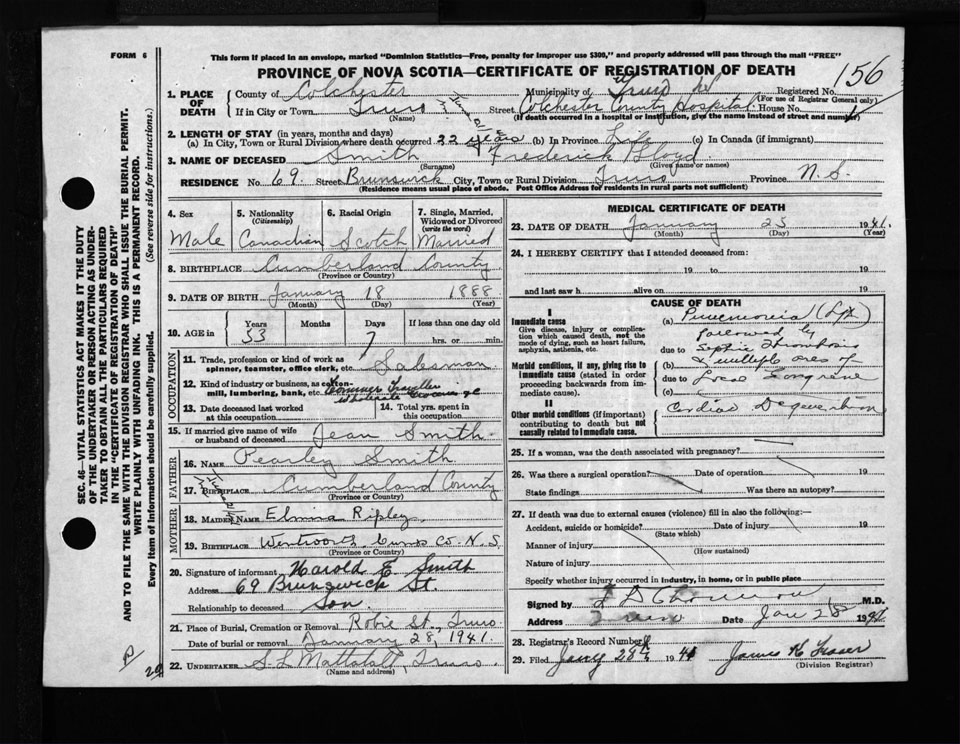 FORM 6
This form if placed in an envelope, marked "Dominion Statistics—Free, penalty for improper use $300," and properly addressed will pass through the mail "FREE"
PROVINCE OF NOVA SCOTIA—CERTIFICATE OF REGISTRATION OF DEATH
156
1. PLACE OF DEATH
County of Colchester Municipality of Truro Registered No.
(For use of Registrar General only)
If in City or Town Truro Street Colchester County Hospital House No.
(Name) (If death occurred in a hospital or institution, give the name instead of street and number)
2. LENGTH OF STAY (in years, months and days)
(a) In City, Town or Rural Division where death occurred 22 years (b) In Province Life (c) In Canada (if immigrant)
3. NAME OF DECEASED Smith Frederick Lloyd
(Surname) (Given name or names)
RESIDENCE No. 69. Street Brunswick City, Town or Rural Division Truro Province N.S.
(Residence means usual place of abode. Post Office Address for residents in rural parts not sufficient)
4. Sex
Male
5. Nationality (Citizenship)
Canadian
6. Racial Origin
Scotch
7. Single, Married, Widowed or Divorced (write the word)
Married
8. BIRTHPLACE Cumberland County
(Province or Country)
9. DATE OF BIRTH January 18 1888
(Month) (Day) (Year)
10. AGE in Years Months Days If less than one day old
53 7 hrs. or min.
OCCUPATION
11. Trade, profession or kind of work as spinner, teamster, office clerk, etc. Salesman
12. Kind of industry or business, as cotton-mill, lumbering, bank, etc. Commer Traveller
Wholesale
13. Date deceased last worked at this occupation
14. Total yrs. spent in this occupation
15. If married give name of wife or husband of deceased Jean Smith
FATHER
16. NAME Pearley Smith
17. BIRTHPLACE Cumberland County
(Province or Country)
MOTHER
18. MAIDEN NAME Elmira Ripley
19. BIRTHPLACE Wentworth Cumb Co. N.S.
(Province or Country)
20. Signature of informant Harold E Smith
Address 69 Brunswick St.
Relationship to deceased Son
21. Place of Burial, Cremation or Removal Robie St., Truro
Date of burial or removal January 28, 1941.
22. UNDERTAKER Truro.
(Name and address)
MEDICAL CERTIFICATE OF DEATH
23. DATE OF DEATH January 25 1941.
(Month) (Day) (Year)
24. I HEREBY CERTIFY that I attended deceased from:
19 to 19
and last saw h alive on 19
CAUSE OF DEATH
I
Immediate cause
Give disease, injury or complication which caused death, not the mode of dying, such as heart failure, asphyxia, asthenia, etc.
(a) Pneumonia
followed by
due to Septic Thrombosis
Morbid conditions, if any, giving rise to immediate cause (stated in order proceeding backwards from immediate cause).
(b) & multiple area of
due to Local Gangrene
(c)
II
Other morbid conditions (if important) contributing to death but not causally related to immediate cause.
Cardiac
25. If a woman, was the death associated with pregnancy?
26. Was there a surgical operation? Date of operation 19
State findings Was there an autopsy?
27. If death was due to external causes (violence) fill in also the following:
Accident, suicide or homicide? Date of injury 19
(State which)
Manner of injury
(How sustained)
Nature of injury
Specify whether injury occurred in industry, in home, or in public place
Signed by M.D.
Address Truro Date Jan 28 1941
28. Registrar's Record Number
29. Filed Jany 28 1941 James K Fraser
(Division Registrar)
SEC. 46—VITAL STATISTICS ACT MAKES IT THE DUTY OF THE UNDERTAKER OR PERSON ACTING AS UNDERTAKER TO OBTAIN ALL THE PARTICULARS REQUIRED IN THE "CERTIFICATE OF REGISTRATION OF DEATH" AND TO FILE THE SAME WITH THE DIVISION REGISTRAR WHO SHALL ISSUE THE BURIAL PERMIT.
WRITE PLAINLY WITH UNFADING INK. THIS IS A PERMANENT RECORD.
Every item of information should be carefully supplied. (See reverse side for instructions.)